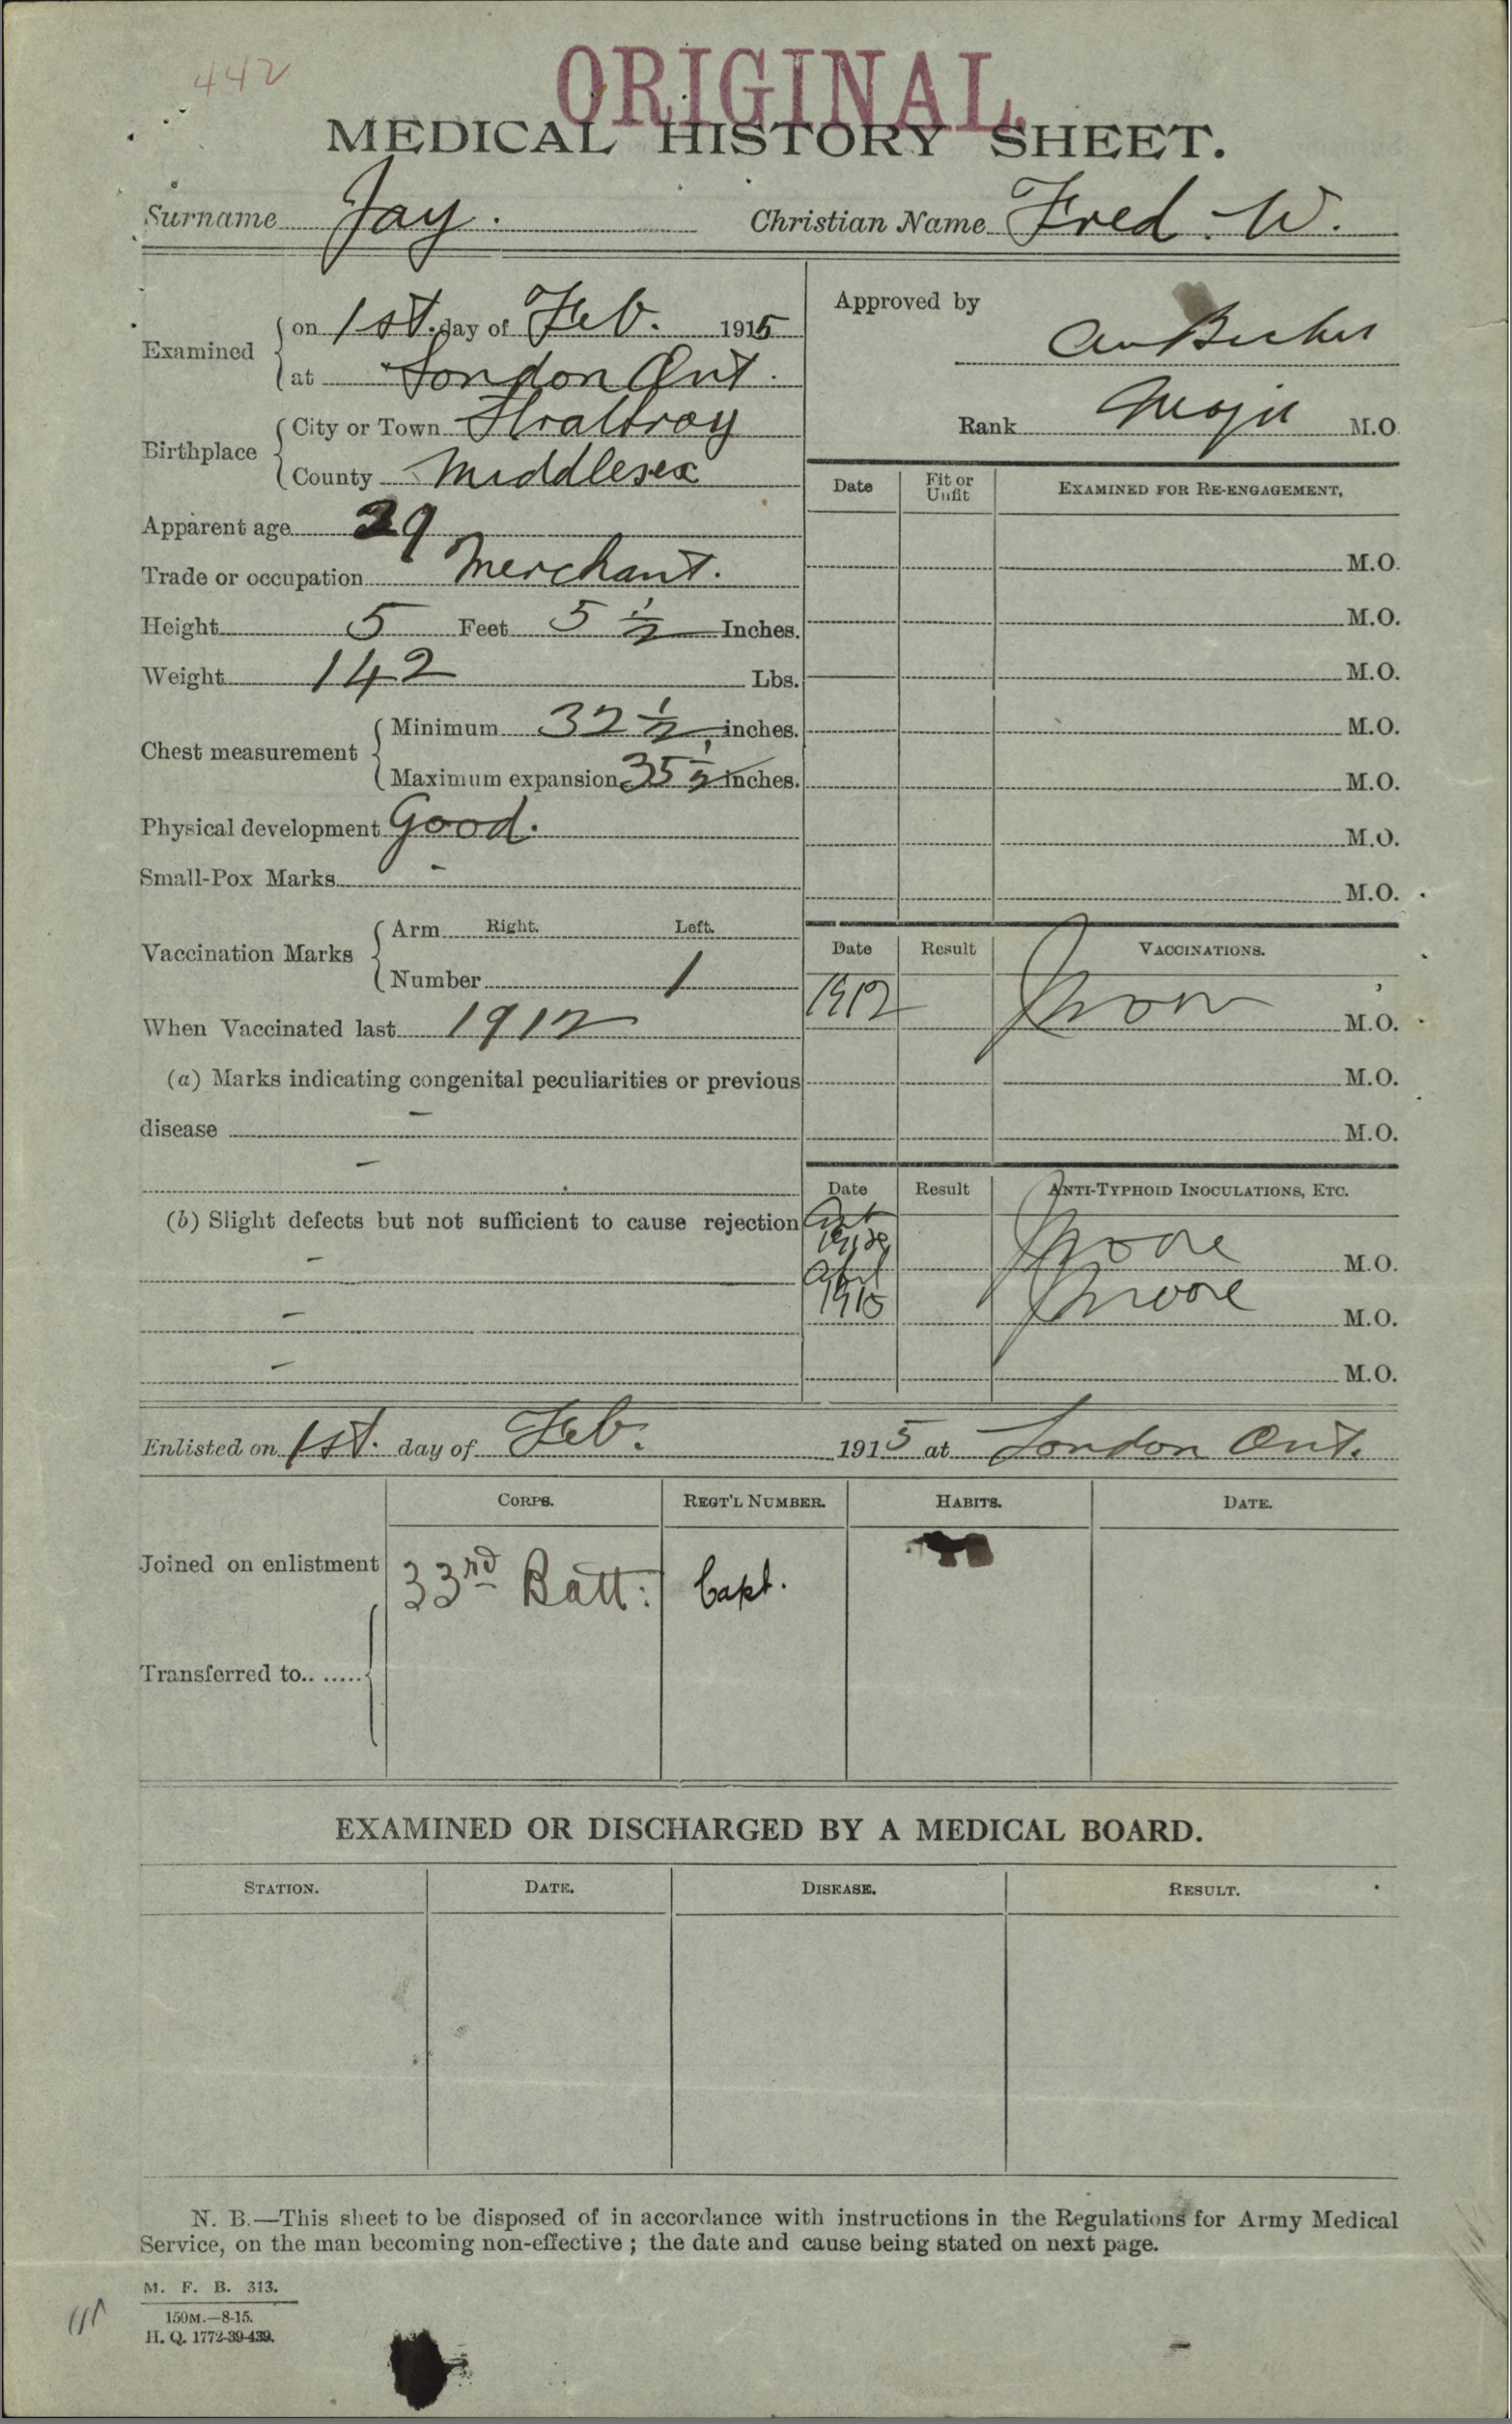 442
ORIGINAL
MEDICAL HISTORY SHEET.
Surname Jay. Christian Name Fred. W.
Examined { on 1st. day of Feb. 1915
at London Ont.
Approved by
Rank Major M.O.
Birthplace { City or Town Strathroy
County Middlesex
Apparent age 29
Trade or occupation Merchant.
Height 5 Feet 5 1/2 Inches.
Weight 142 Lbs.
Chest measurement { Minimum 32 1/2 inches.
Maximum expansion 35 1/2 inches.
Physical development Good.
Small-Pox Marks -
Vaccination Marks { Arm Right. Left.
Number 1
When Vaccinated last 1912
(a) Marks indicating congenital peculiarities or previous
disease -
-
(b) Slight defects but not sufficient to cause rejection
-
-
-
Date Fit or Unfit EXAMINED FOR RE-ENGAGEMENT,
M.O.
M.O.
M.O.
M.O.
M.O.
M.O.
M.O.
Date Result VACCINATIONS.
1912 M.O.
M.O.
M.O.
Date Result ANTI-TYPHOID INOCULATIONS, ETC.
Moore M.O.
April
1915 Moore M.O.
M.O.
Enlisted on 1st. day of Feb. 1915 at London Ont.
CORPS. REGT'L NUMBER. HABITS. DATE.
Joined on enlistment 33rd Batt. Capt.
Transferred to.. ..... {
EXAMINED OR DISCHARGED BY A MEDICAL BOARD.
STATION. DATE. DISEASE. RESULT.
N. B.—This sheet to be disposed of in accordance with instructions in the Regulations for Army Medical
Service, on the man becoming non-effective ; the date and cause being stated on next page.
M. F. B. 313.
150M.—8-15.
H. Q. 1772-39-439.